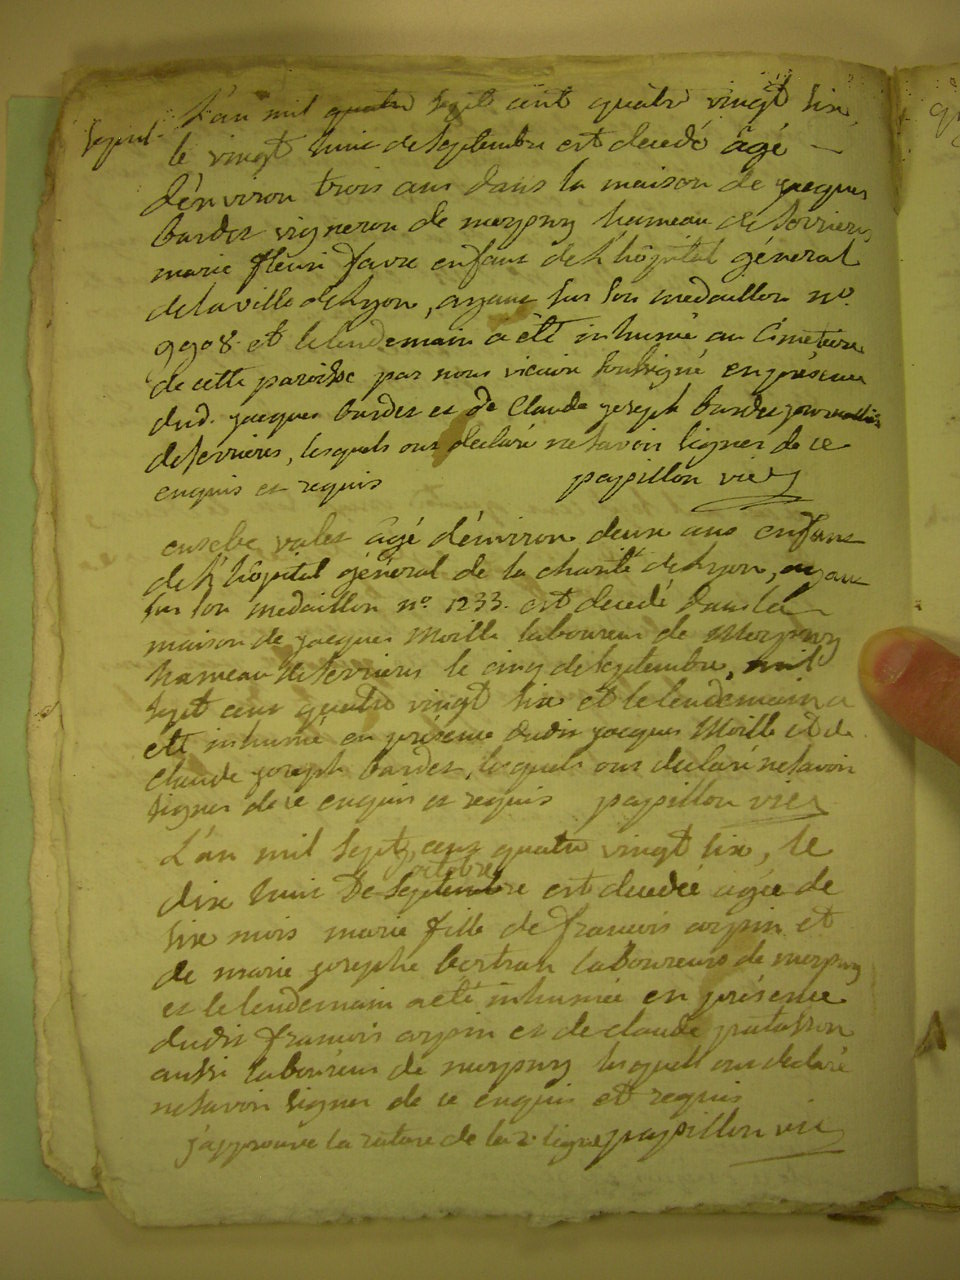 L'an mil quatre sept cent quatre vingt six,
le vingt huit de septembre est decedé âgé
d'environ trois ans dans la maison de jacques
bardet vigneron de meypiny hameau de serrieres
marie fleuri favre enfant de l'hôpital général
de la ville de Lyon, ayant sur son medaillon n.º
9908 et le lendemain a été inhumé au cimetiere
de cette paroisse par nous vicaire soussigné en présence
dud. jacques bardet et de Claude joseph bardet journallier
de serrieres, lesquels ont declaré ne savoir signer de ce
enquis et requis papillon vic
eusebe valet âgé d'environ deux ans enfant
de l'hôpital général de la charité de Lyon, ayant
sur son medaillon n.º 1233. est decedé dans la
maison de jacques Moille laboureur de
hameau de serrieres le cinq de septembre, mil
sept cent quatre vingt six et le lendemain a
été inhumé en présence dudit jacques Moille et de
claude joseph bardet, lesquels ont declaré ne savoir
signer de ce enquis et requis papillon vic
L'an mil sept cent quatre vingt six, le
octobre
dix huit de septembre est decedée agée de
six mois marie fille de francois arpin et
de marie josephe bertran laboureurs de
et le lendemain a eté inhumée en présence
dudit francois arpin et de claude
aussi laboureur de lesquels ont declaré
ne savoir signer de ce enquis et requis
j'approuve la rature de la 2. ligne papillon vic